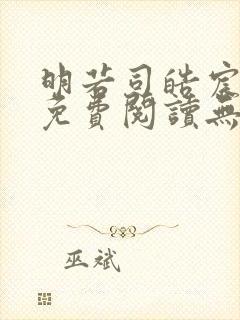 明若司皓宸
免費閱讀無
巫斌